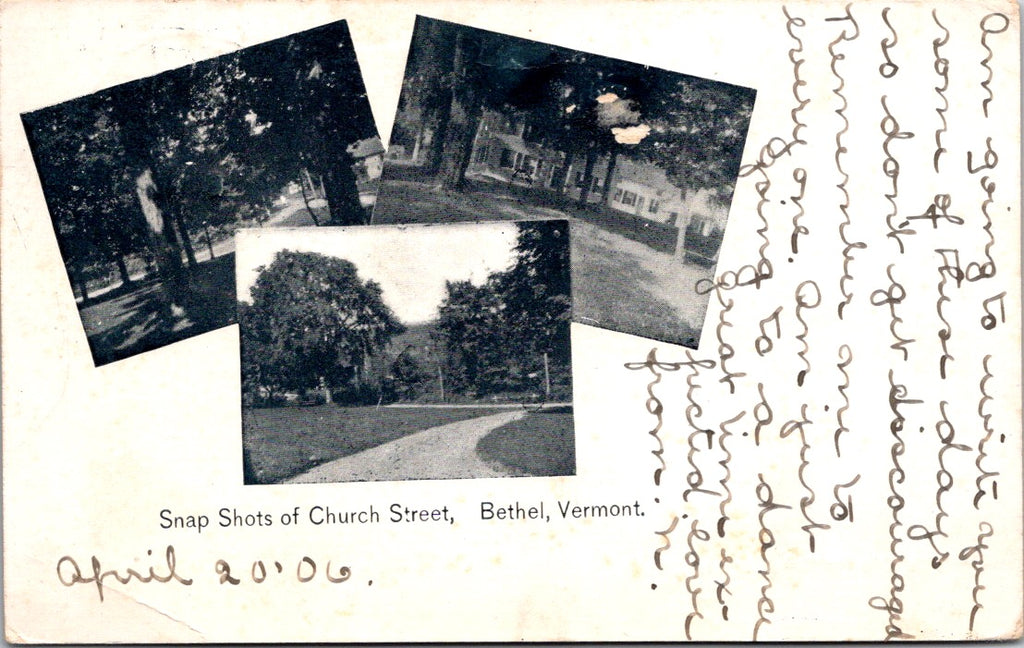 Snap Shots of Church Street, Bethel, Vermont.
April 20 '06.
Am going to write you
some of these days
so don't get discouraged
Remember me to
every one. Am just
going to a dance
great time ex-
pected love
from. N.